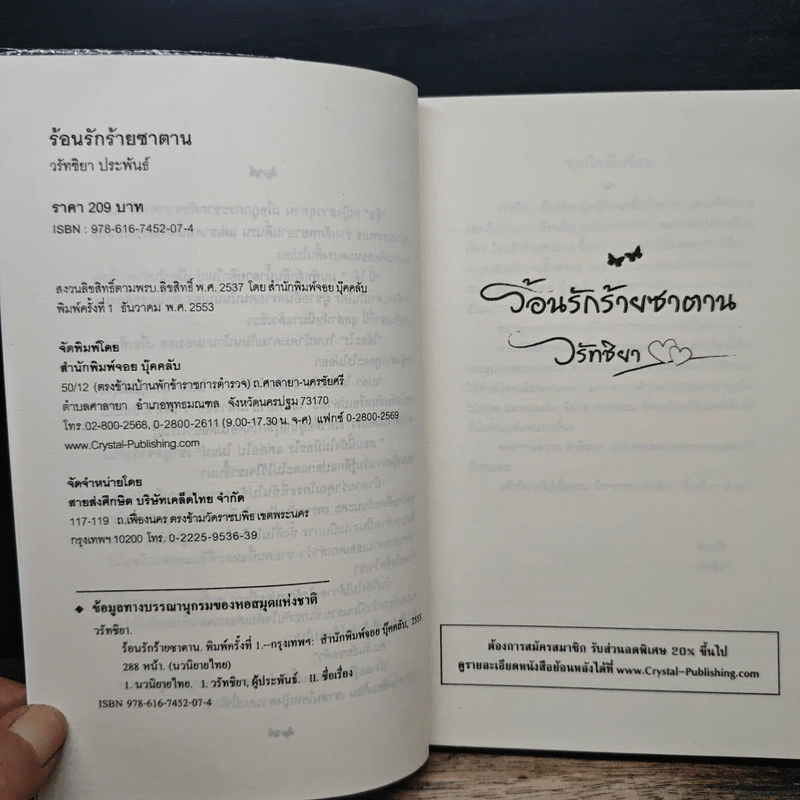 ร้อนรักร้ายซาตาน
วรัทชิยา ประพันธ์
ราคา 209 บาท
ISBN : 978-616-7452-07-4
สงวนลิขสิทธิ์ตามพรบ.ลิขสิทธิ์ พ.ศ. 2537 โดย สำนักพิมพ์จอย บุ๊คคลับ
พิมพ์ครั้งที่ 1 ธันวาคม พ.ศ. 2553
จัดพิมพ์โดย
สำนักพิมพ์จอย บุ๊คคลับ
50/12 (ตรงข้ามบ้านพักข้าราชการตำรวจ) ถ.ศาลายา-นครชัยศรี
ตำบลศาลายา อำเภอพุทธมณฑล จังหวัดนครปฐม 73170
โทร.02-800-2568, 0-2800-2611 (9.00-17.30 น.จ-ศ) แฟกซ์ 0-2800-2569
www.Crystal-Publishing.com
จัดจำหน่ายโดย
สายส่งศึกษิต บริษัทเคล็ดไทย จำกัด
117-119 ถ.เฟื่องนคร ตรงข้ามวัดราชบพิธ เขตพระนคร
กรุงเทพฯ 10200 โทร. 0-2225-9536-39
◆ ข้อมูลทางบรรณานุกรมของหอสมุดแห่งชาติ
วรัทชิยา.
ร้อนรักร้ายซาตาน. พิมพ์ครั้งที่ 1.--กรุงเทพฯ: สำนักพิมพ์จอย บุ๊คคลับ, 2553
288 หน้า. (นวนิยายไทย)
1. นวนิยายไทย. 1. วรัทชิยา, ผู้ประพันธ์. II. ชื่อเรื่อง
ISBN 978-616-7452-07-4
ร้อนรักร้ายซาตาน
วรัทชิยา
ต้องการสมัครสมาชิก รับส่วนลดพิเศษ 20% ขึ้นไป
ดูรายละเอียดหนังสือย้อนหลังได้ที่ www.Crystal-Publishing.com